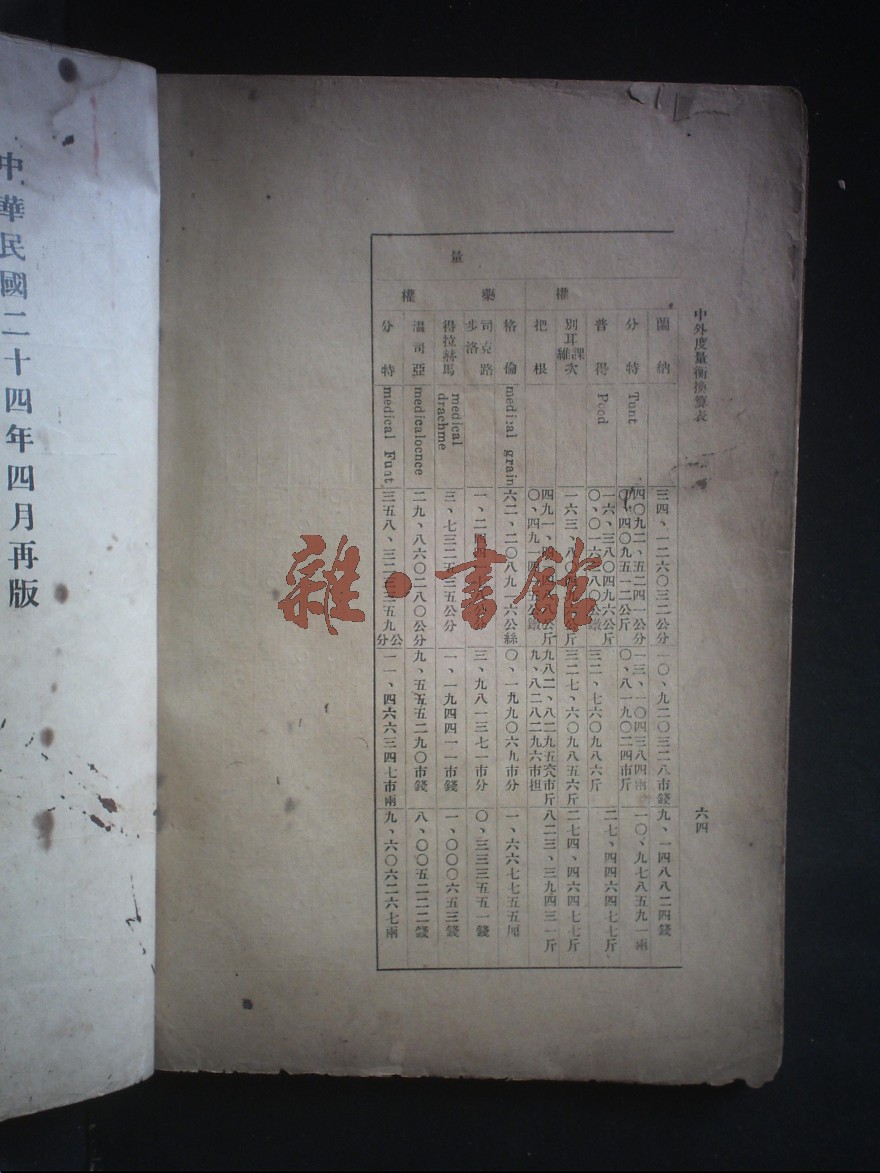 中外度量衡換算表
六四
量
權
藥
權
蘭納
三四、一二六〇三二公分
一〇、九二〇三二八市錢
九、一四八八二四錢
分特
Tunt
四〇九二、五二四一公分
〇、四〇九五一二公斤
一三、一〇四三八四兩
〇、八一九〇二四市斤
一〇、九七八五九一兩
普得
Pood
一六、三八〇四九六公斤
三二、七六〇九八六斤
二七、四四六四七七斤
別耳課維次
三二七、六〇九八五六斤
二七四、四六四七七斤
把根
九、八二八二九六市担
八二三、三九四三一斤
格倫
medical grain
六二、二〇八九一六公絲
〇、一九九〇六九市分
一、六六七七五五厘
司克路步洛
三、九八一三七一市分
〇、三三三五五一錢
得拉赫馬
medical drachme
三、七三二五三五公分
一、一九四四一一市錢
一、〇〇〇六五三錢
溫司亞
medicalocnce
二九、八六〇二八〇公分
九、五五五二九〇市錢
八、〇〇五二二二錢
分特
medical Funt
三五八、三二三三五九公分
一一、四六六三四七市兩
九、六〇六二六七兩
中華民國二十四年四月再版
雜·書館